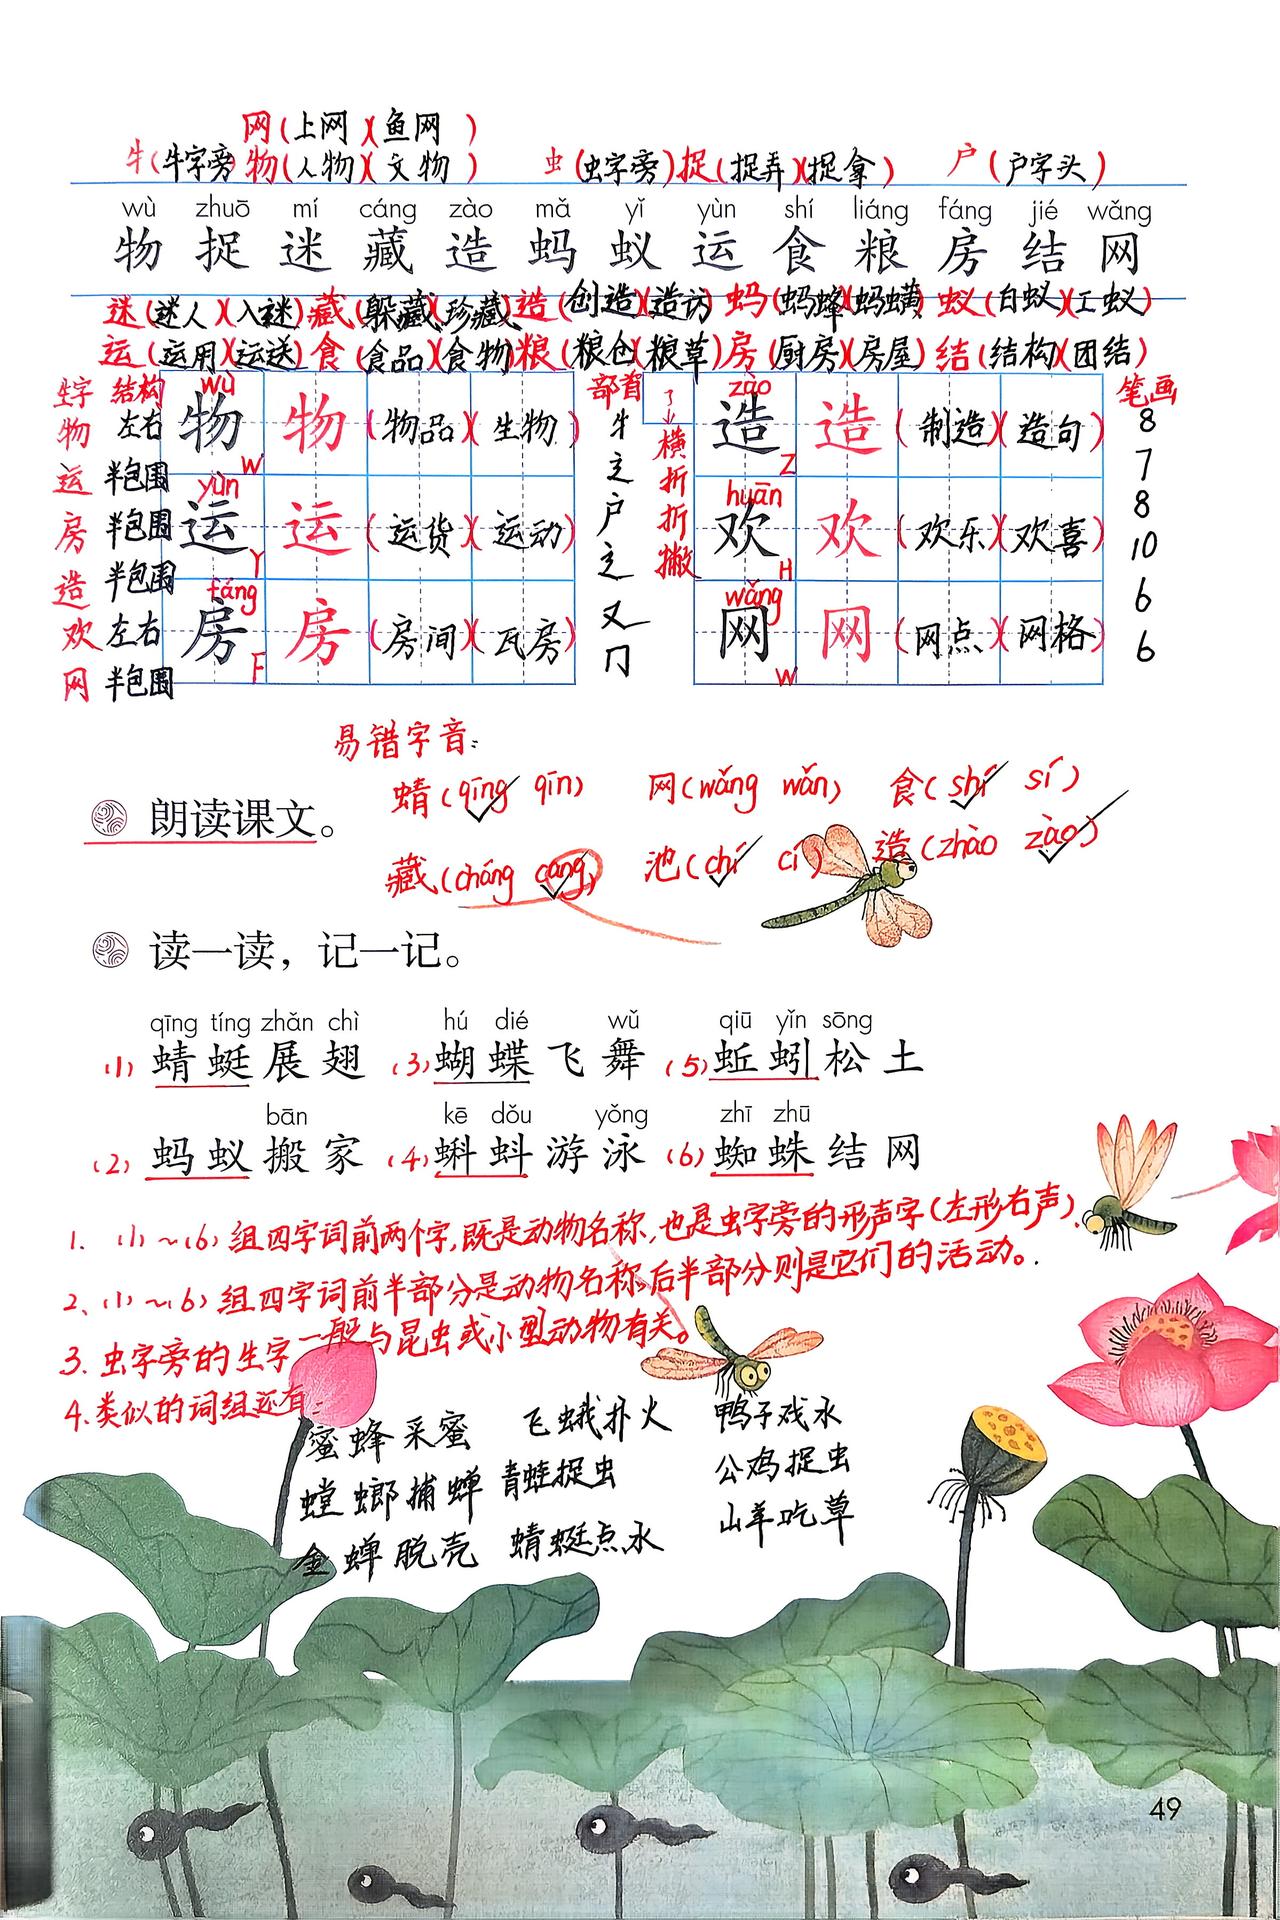 网(上网)(鱼网)
牛(牛字旁)物(人物)(文物) 虫(虫字旁)捉(捉弄)(捉拿) 户(户字头)
wù zhuō mí cáng zào mǎ yǐ yùn shí liáng fáng jié wǎng
物 捉 迷 藏 造 蚂 蚁 运 食 粮 房 结 网
迷(迷人)(入迷)藏(躲藏)(珍藏)造(创造)(造访)蚂(蚂蜂)(蚂蟥)蚁(白蚁)(工蚁)
运(运用)(运送)食(食品)(食物)粮(粮仓)(粮草)房(厨房)(房屋)结(结构)(团结)
生字 结构 部首 笔画
wù zào
物 左右 物 物 (物品)(生物) W 牛 造 造 (制造)(造句) Z 8
运 半包围 辶 7
yùn huān
房 半包围 运 运 (运货)(运动) Y 户 欢 欢 (欢乐)(欢喜) H 8
造 半包围 辶 10
fáng wǎng
欢 左右 房 房 (房间)(瓦房) F 又 网 网 (网点)(网格) W 6
网 半包围 冂 6
横折折撇
易错字音:
蜻(qīng qīn) 网(wǎng wǎn) 食(shí sí)
朗读课文。
藏(cháng cáng) 池(chí cí) 造(zhào zào)
读一读，记一记。
qīng tíng zhǎn chì hú dié wǔ qiū yǐn sōng
(1) 蜻蜓展翅 (3) 蝴蝶飞舞 (5) 蚯蚓松土
bān kē dǒu yǒng zhī zhū
(2) 蚂蚁搬家 (4) 蝌蚪游泳 (6) 蜘蛛结网
1. (1)~(6)组四字词前两个字,既是动物名称,也是虫字旁的形声字(左形右声).
2、(1)~(6)组四字词前半部分是动物名称,后半部分则是它们的活动。
3. 虫字旁的生字一般与昆虫或小型动物有关。
4.类似的词组还有:
蜜蜂采蜜 飞蛾扑火 鸭子戏水
螳螂捕蝉 青蛙捉虫 公鸡捉虫
金蝉脱壳 蜻蜓点水 山羊吃草
49